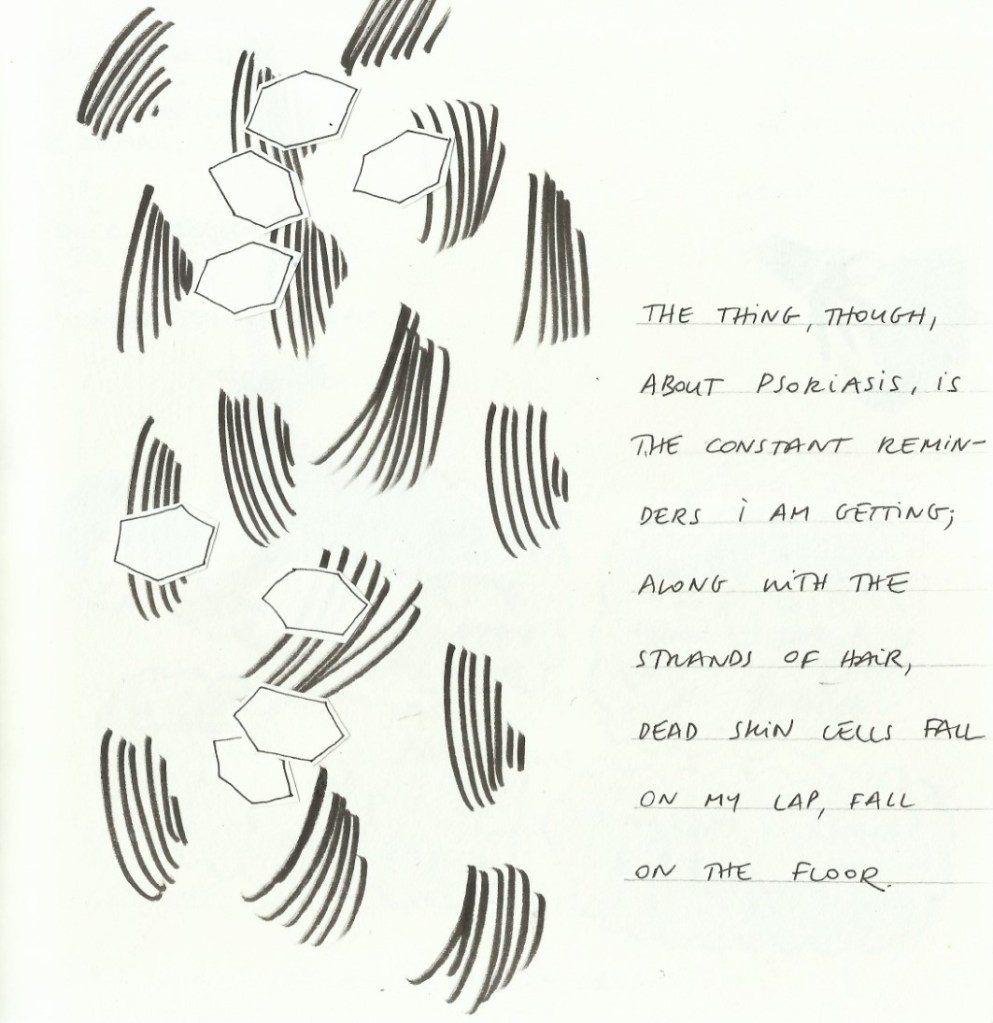 THE THiNG, THOUGH,
ABOUT PSORiASiS, iS
THE CONSTANT REMiN-
DERS i AM GETTiNG;
ALONG WiTH THE
STRANDS OF HAiR,
DEAD SKiN CELLS FALL
ON MY LAP, FALL
ON THE FLOOR.